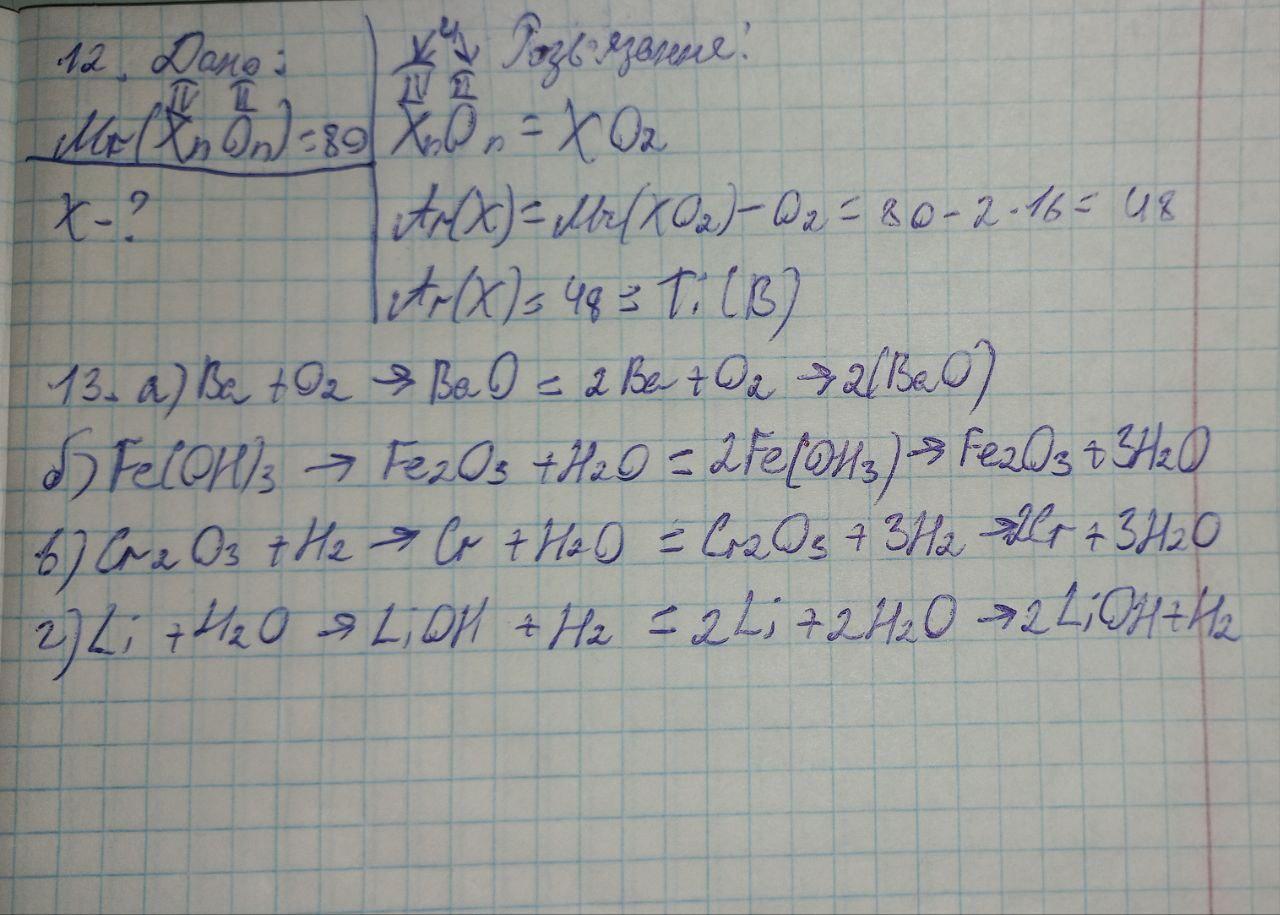 12. Дано:
IV II
Mr(XnOn)=80
X-?
Розв'язання:
4
IV II
XnOn = XO2
Ar(X)=Mr(XO2)-O2 = 80-2·16= 48
Ar(X)=48= Ti (В)
13. а) Ba + O2 → BaO = 2Ba + O2 → 2(BaO)
б) Fe(OH)3 → Fe2O3 + H2O = 2Fe(OH3) → Fe2O3 + 3H2O
в) Cr2O3 + H2 → Cr + H2O = Cr2O3 + 3H2 → 2Cr + 3H2O
г) Li + H2O → LiOH + H2 = 2Li + 2H2O → 2LiOH + H2